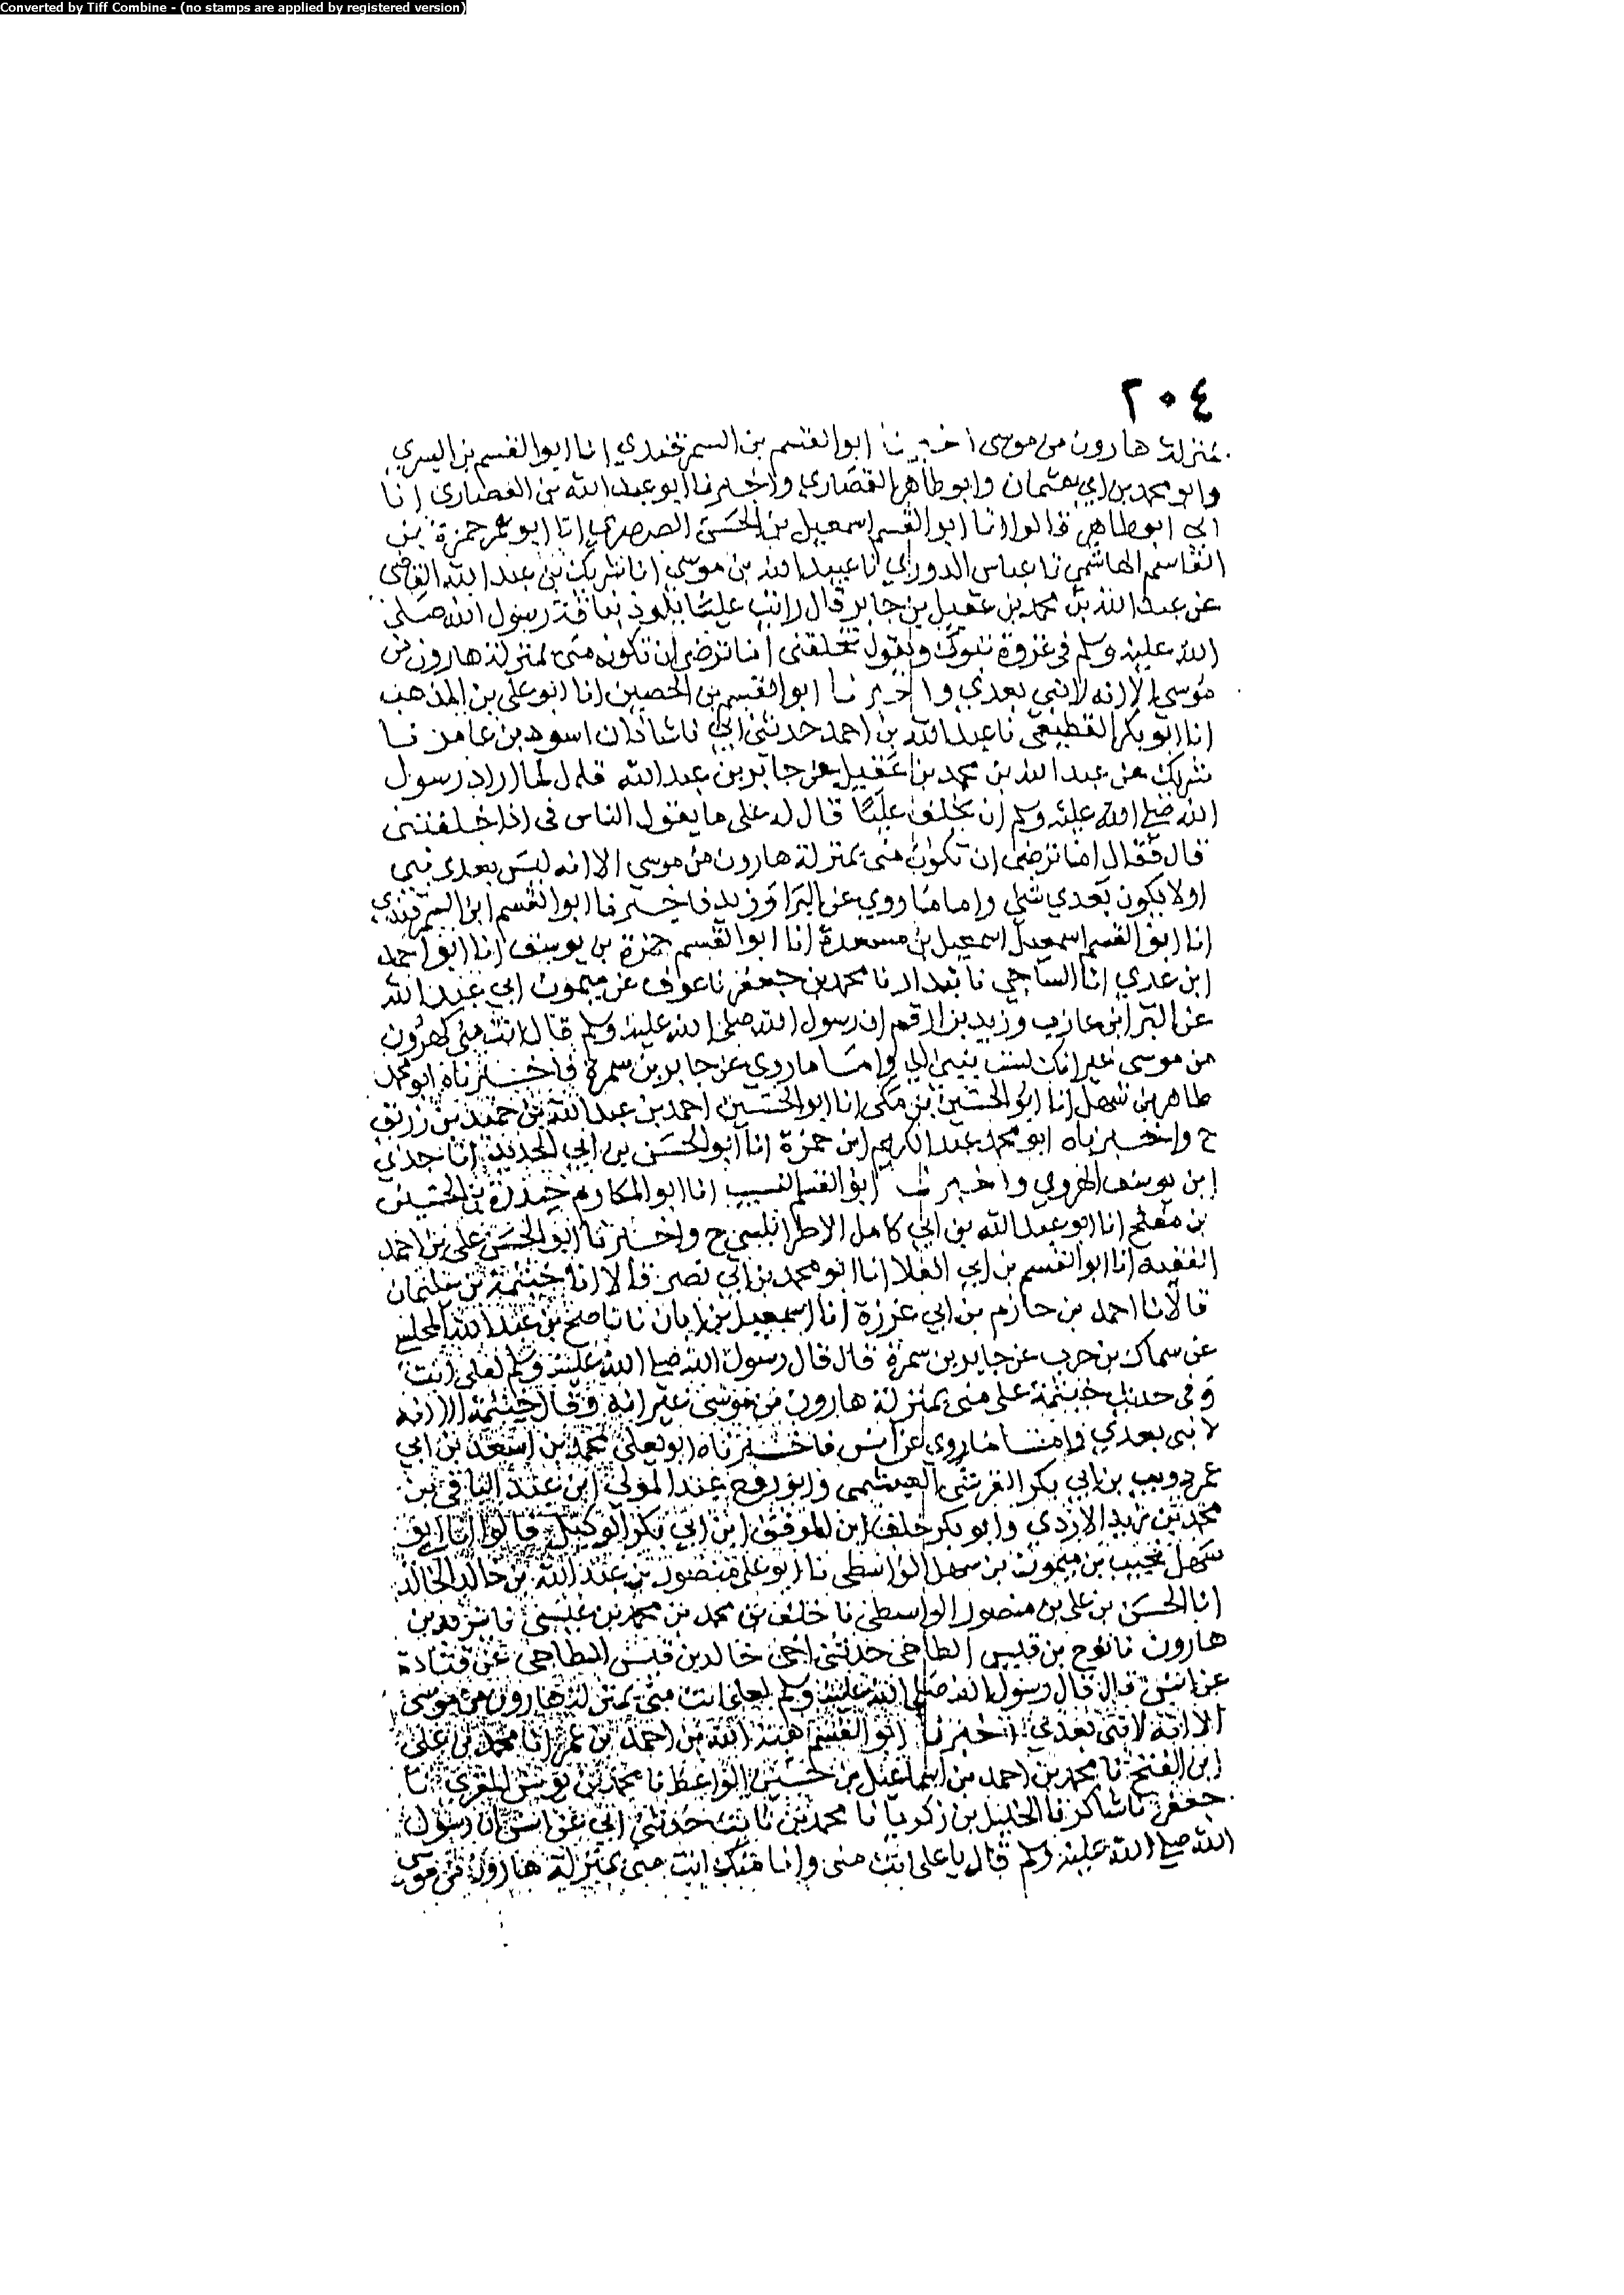 Converted by Tiff Combine - (no stamps are applied by registered version)
٢٠٤
بمنزلة هارون من موسى اخبرنا ابو القسم بن السمرقندي انا ابو القسم بن البسري
وابو محمد بن ابي عثمان وابو طاهر القصاري واخبرنا ابو عبد الله بن القصاري انا
ابي ابو طاهر قالوا انا ابو القسم اسمعيل بن الحسن الصرصري انا ابو عمر حمزة بن
القاسم الهاشمي نا عباس الدوري نا عبيد الله بن موسى انا شريك بن عبد الله القاضي
عن عبد الله بن محمد بن عقيل بن جابر قال رايت عليا يلوذ بناقة رسول الله صلى
الله عليه وسلم في غزوة تبوك ويقول تخلفني اما ترضى ان تكون مني بمنزلة هارون من
موسى الا انه لا نبي بعدي واخبرنا ابو القسم بن الحصين انا ابو علي بن المذهب
انا ابو بكر القطيعي نا عبد الله بن احمد حدثني ابي نا شاذان اسود بن عامر نا
شريك عن عبد الله بن محمد بن عقيل عن جابر بن عبد الله قال لما اراد رسول
الله صلى الله عليه وسلم ان يخلف عليا قال له علي ما يقول الناس في اذا خلفتني
قال فقال اما ترضى ان تكون مني بمنزلة هارون من موسى الا انه ليس بعدي نبي
اولا يكون بعدي نبي واما ما روي عن البرا وزيد فاخبرنا ابو القسم ابن السمرقندي
انا ابو القسم اسمعيل اسمعيل بن مسعدة انا ابو القسم حمزة بن يوسف انا ابو احمد
ابن عدي انا الساجي نا بندار نا محمد بن جعفر نا عوف عن ميمون ابي عبد الله
عن البرا بن عازب وزيد بن ارقم ان رسول الله صلى الله عليه وسلم قال انت مني كهرون
من موسى غير انك لست بنبي واما ما روي عن جابر بن سمرة فاخبرناه ابو محمد
طاهر بن سهل انا ابو الحسين بن مكي انا ابو الحسين احمد بن عبد الله بن حميد بن زريق
ح واخبرناه ابو محمد عبد الكريم ابن حمزة انا ابو الحسن بن ابي الحديد انا جدي
ابن يوسف الهروي واخبرنا ابو القسم النسيب انا ابو المكارم حيدرة بن الحسين
بن مفلح انا ابو عبد الله بن ابي كامل الاطرابلسي ح واخبرنا ابو الحسن علي بن احمد
الفقيه انا ابو القسم بن ابي العلا انا ابو محمد بن ابي نصر قالا انا خيثمة بن سليمان
قالا نا احمد بن حازم بن ابي غرزة انا اسمعيل بن ابان نا ناصح بن عبد الله المحلمي
عن سماك بن حرب عن جابر بن سمرة قال قال رسول الله صلى الله عليه وسلم لعلي انت
وفي حديث خيثمة علي مني بمنزلة هارون من موسى غير انه وقال خيثمة الا انه
لا نبي بعدي واما ما روي عن انس فاخبرناه ابو يعلى محمد بن اسعد بن ابي
عمر دويب بن ابي بكر القرشي العبشمي وابو روح عبد المولى ابن عبد الباقي بن
محمد بن يزيد الازدي وابو بكر خلف ابن الموفق ابن ابي بكر الوكيل قالوا انا ابو
سهل نجيب بن ميمون بن سهل الواسطي نا ابو علي منصور بن عبد الله بن خالد الخالد
انا الحسن بن علي بن منصور الواسطي نا خلف بن محمد بن محمد بن عيسى نا يزيد بن
هارون نا نوح بن قيس الطاحي حدثني اخي خالد بن قيس الطاحي عن قتادة
عن انس قال قال رسول الله صلى الله عليه وسلم لعلي انت مني بمنزلة هارون من موسى
الا انه لا نبي بعدي اخبرنا ابو القسم هبة الله بن احمد بن عمر انا محمد بن علي
ابن الفتح نا محمد بن احمد بن اسماعيل بن حسين الواعظ نا محمد بن يونس المقري نا
جعفر نا شاكر نا الخليل بن زكريا نا محمد بن ثابت حدثني ابي عن انس ان رسول
الله صلى الله عليه وسلم قال يا علي انت مني وانا منك انت مني بمنزلة هارون من موسى